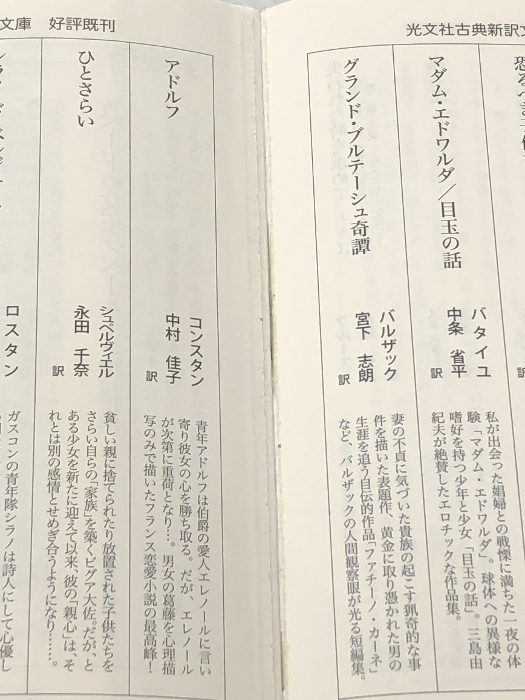 光文社古典新訳文
マダム・エドワルダ／目玉の話
バタイユ
中条　省平　訳
私が出会った娼婦との戦慄に満ちた一夜の体
験「マダム・エドワルダ」。球体への異様な
嗜好を持つ少年と少女「目玉の話」。三島由
紀夫が絶賛したエロチックな作品集。
グランド・ブルテーシュ奇譚
バルザック
宮下　志朗　訳
妻の不貞に気づいた貴族の起こす猟奇的な事
件を描いた表題作、黄金に取り憑かれた男の
生涯を追う自伝的作品「ファチーノ・カーネ」
など、バルザックの人間観察眼が光る短編集。
文庫　好評既刊
アドルフ
コンスタン
中村　佳子　訳
青年アドルフは伯爵の愛人エレノールに言い
寄り彼女の心を勝ち取る。だが、エレノール
が次第に重荷となり…。男女の葛藤を心理描
写のみで描いたフランス恋愛小説の最高峰！
ひとさらい
シュペルヴィエル
永田　千奈　訳
貧しい親に捨てられたり放置された子供たちを
さらい自らの「家族」を築くビグア大佐。だが、と
ある少女を新たに迎えて以来、彼の「親心」は、そ
れとは別の感情とせめぎ合うようになり……。
ロスタン
ガスコンの青年隊シラノは詩人にして心優し